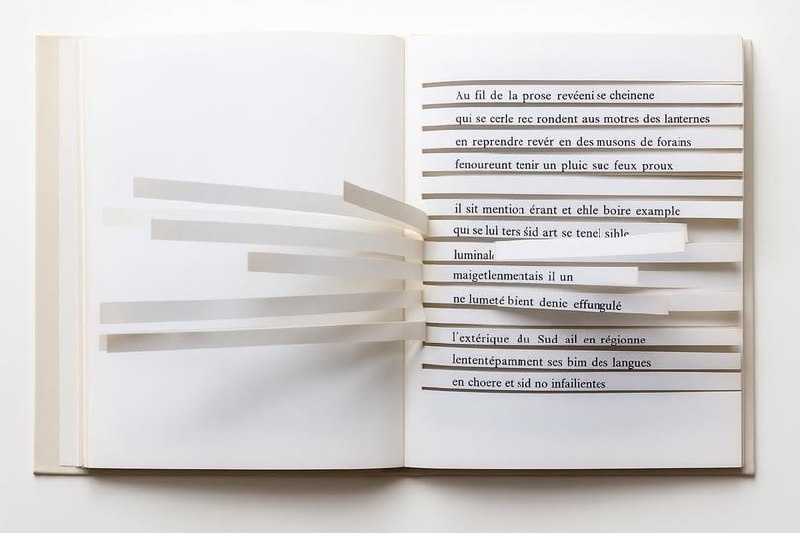 Au fil de la prose revéeni se cheinene
qui se cerle rec rondent aus motres des lanternes
en reprendre revér en des musons de forains
fenoureunt tenir un pluic suc feux proux
il sit mention érant et ehle boire example
qui se lul ters śid art se tenel sible
luminal
maigetlenmentais il un
ne lumeté bient denie effungulé
l'extérique du Sud ail en régionne
lententépamment ses bim des langues
en choere et sid no infailientes